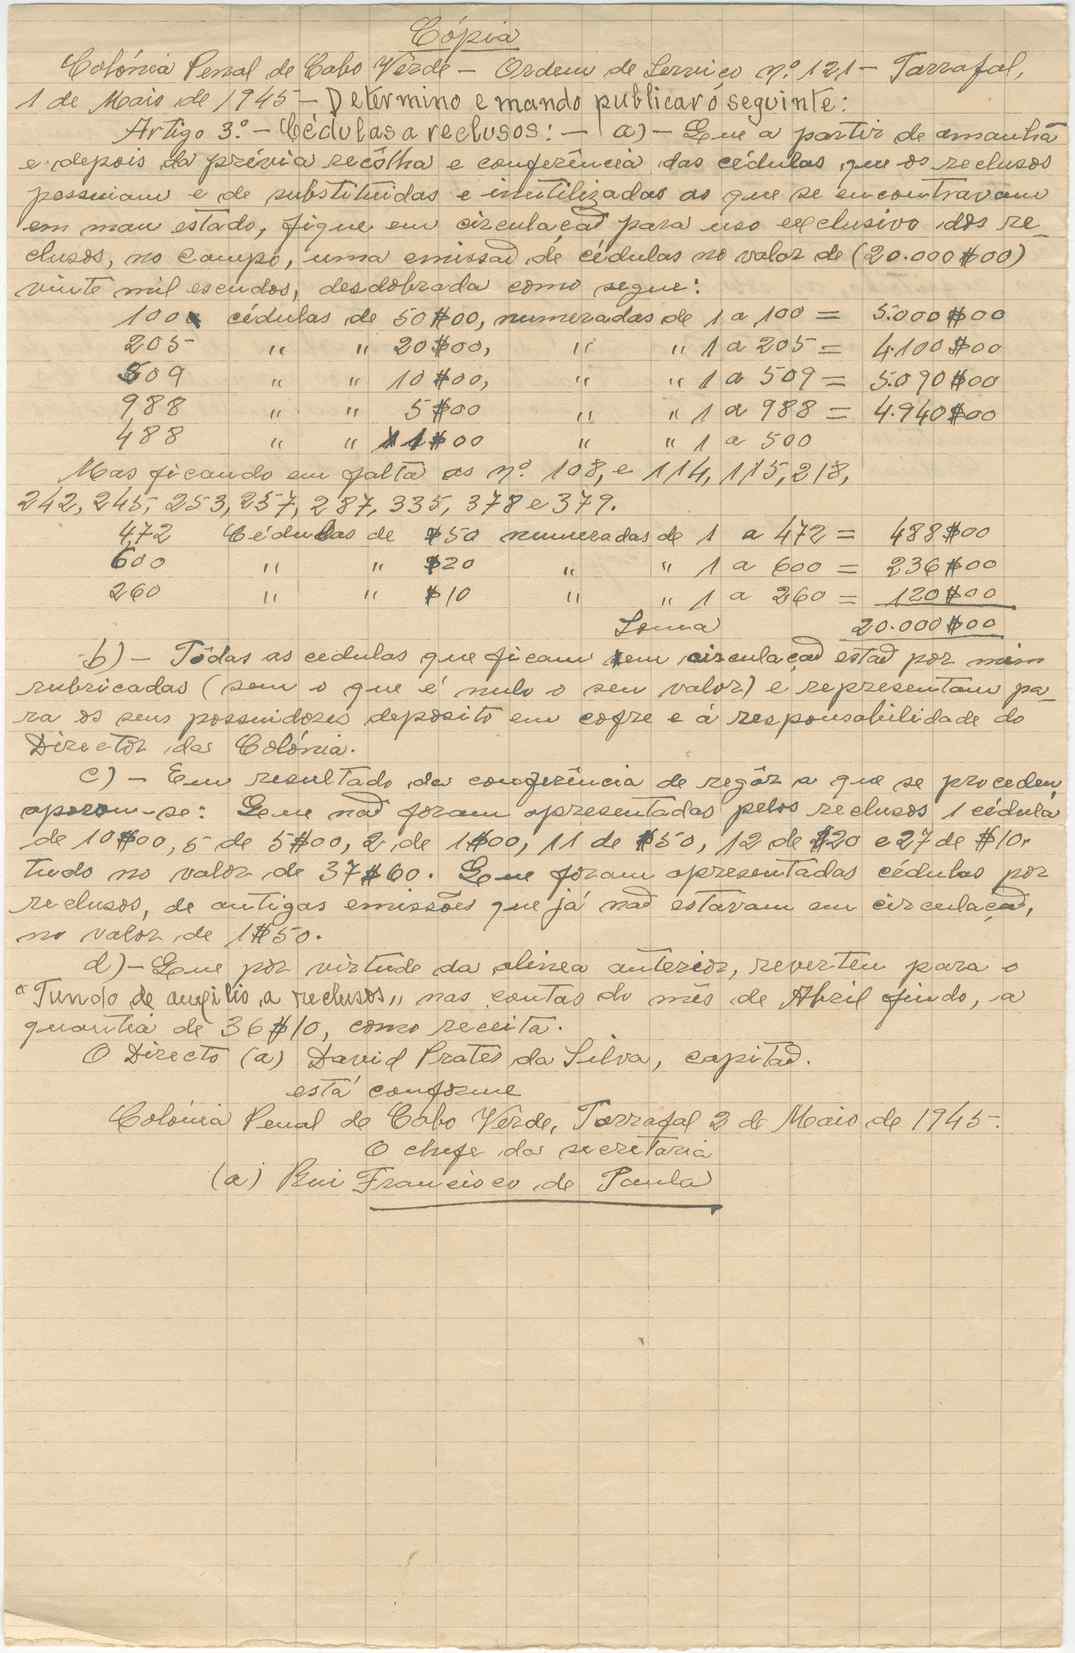 Cópia
Colónia Penal de Cabo Vêrde - Ordem de Serviço nº 121 - Tarrafal,
1 de Maio de 1945 - Determino e mando publicar o seguinte:
Artigo 3.º - Cédulas a reclusos: - a) - Que a partir de amanhã
e depois da prévia recôlha e conferência das cédulas que os reclusos
possuiam e de substituidas e inutilizadas as que se encontravam
em mau estado, fique em circulação para uso exclusivo dos re-
clusos, no campo, uma emissão de cédulas no valor de (20.000$00)
vinte mil escudos, desdobrada como segue:
100 cédulas de 50$00, numeradas de 1 a 100 = 5.000$00
205 " " 20$00, " " 1 a 205 = 4.100$00
509 " " 10$00, " " 1 a 509 = 5.090$00
988 " " 5$00 " " 1 a 988 = 4.940$00
488 " " 1$00 " " 1 a 500
Mas ficando em falta os nº 108, e 114, 115, 218,
242, 245, 253, 257, 287, 335, 378 e 379.
472 Cédulas de $50 numeradas de 1 a 472 = 488$00
600 " " $20 " " 1 a 600 = 236$00
260 " " $10 " " 1 a 260 = 120$00
Soma 20.000$00
b) - Tôdas as cedulas que ficam em circulação estão por mim
rubricadas (sem o que é nulo o seu valor) e representam pa-
ra os seus possuidores deposito em cofre e á responsabilidade do
Director da Colónia.
c) - Em resultado da conferência de regôr a que se procedeu,
apurou-se: Que não foram apresentadas pelos reclusos 1 cédula
de 10$00, 5 de 5$00, 2 de 1$00, 11 de $50, 12 de $20 e 27 de $10.
tudo no valor de 37$60. Que foram apresentadas cédulas por
reclusos, de antigas emissões que já não estavam em circulação,
no valor de 1$50.
d) - Que por virtude da alinea anterior, reverteu para o
"Fundo de auxilio a reclusos" nas contas do mês de Abril findo, a
quantia de 36$10, como receita.
O Directo (a) David Prates da Silva, capitão.
está conforme
Colónia Penal de Cabo Vêrde, Tarrafal 2 de Maio de 1945.
O chefe da secretaria
(a) Rui Francisco de Paula